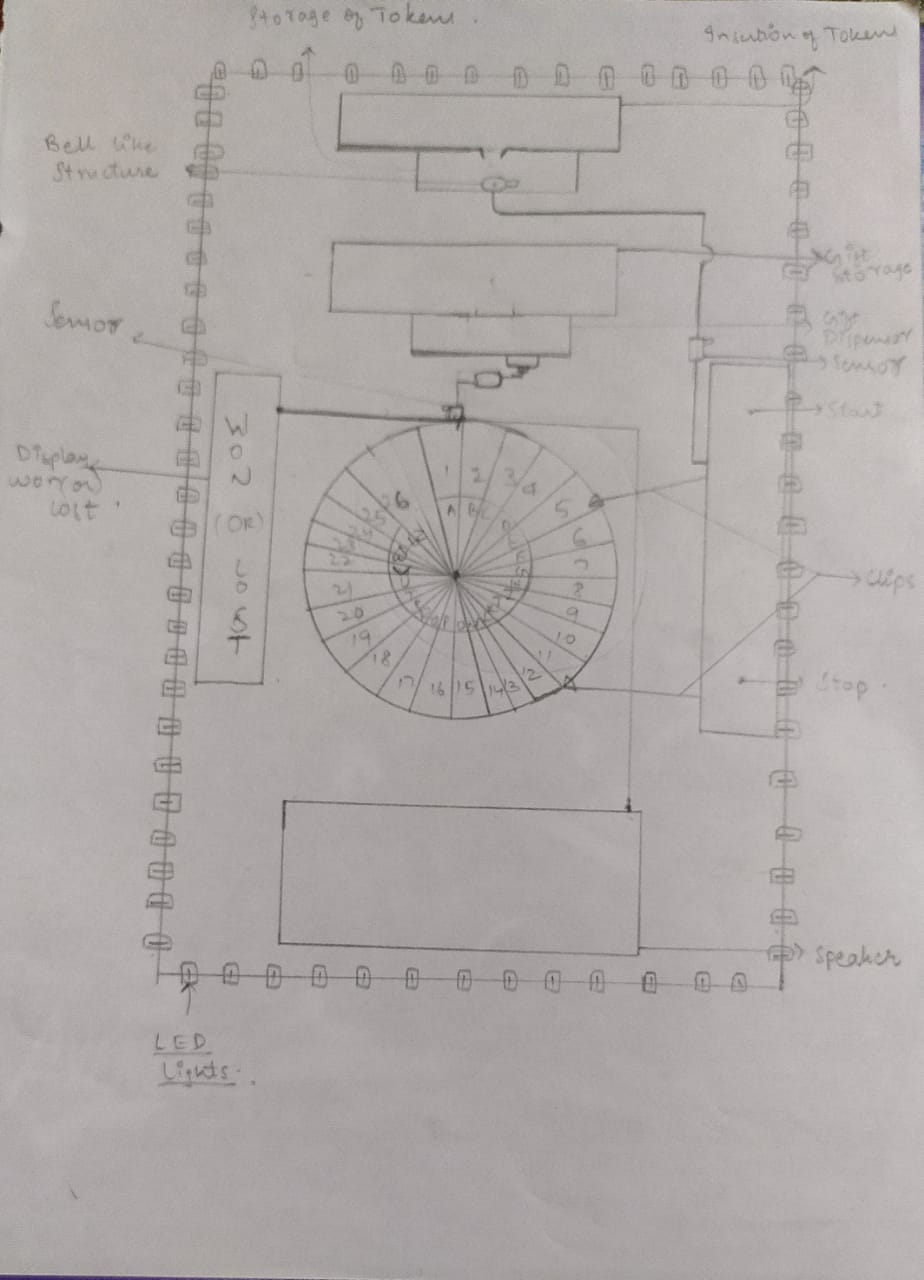 Storage of Tokens.
Insertion of Tokens
Bell like
Structure
Gift
Storage
Sensor
Gift
Dispensor
Sensor
Start
Display
Lost.
WON
(OR)
LOST
1 2 3 4 5 6 7 8 9 10 11 12 13 14 15 16 17 18 19 20 21
25 26
A B C
Clips
Stop.
Speaker
LED
Lights.